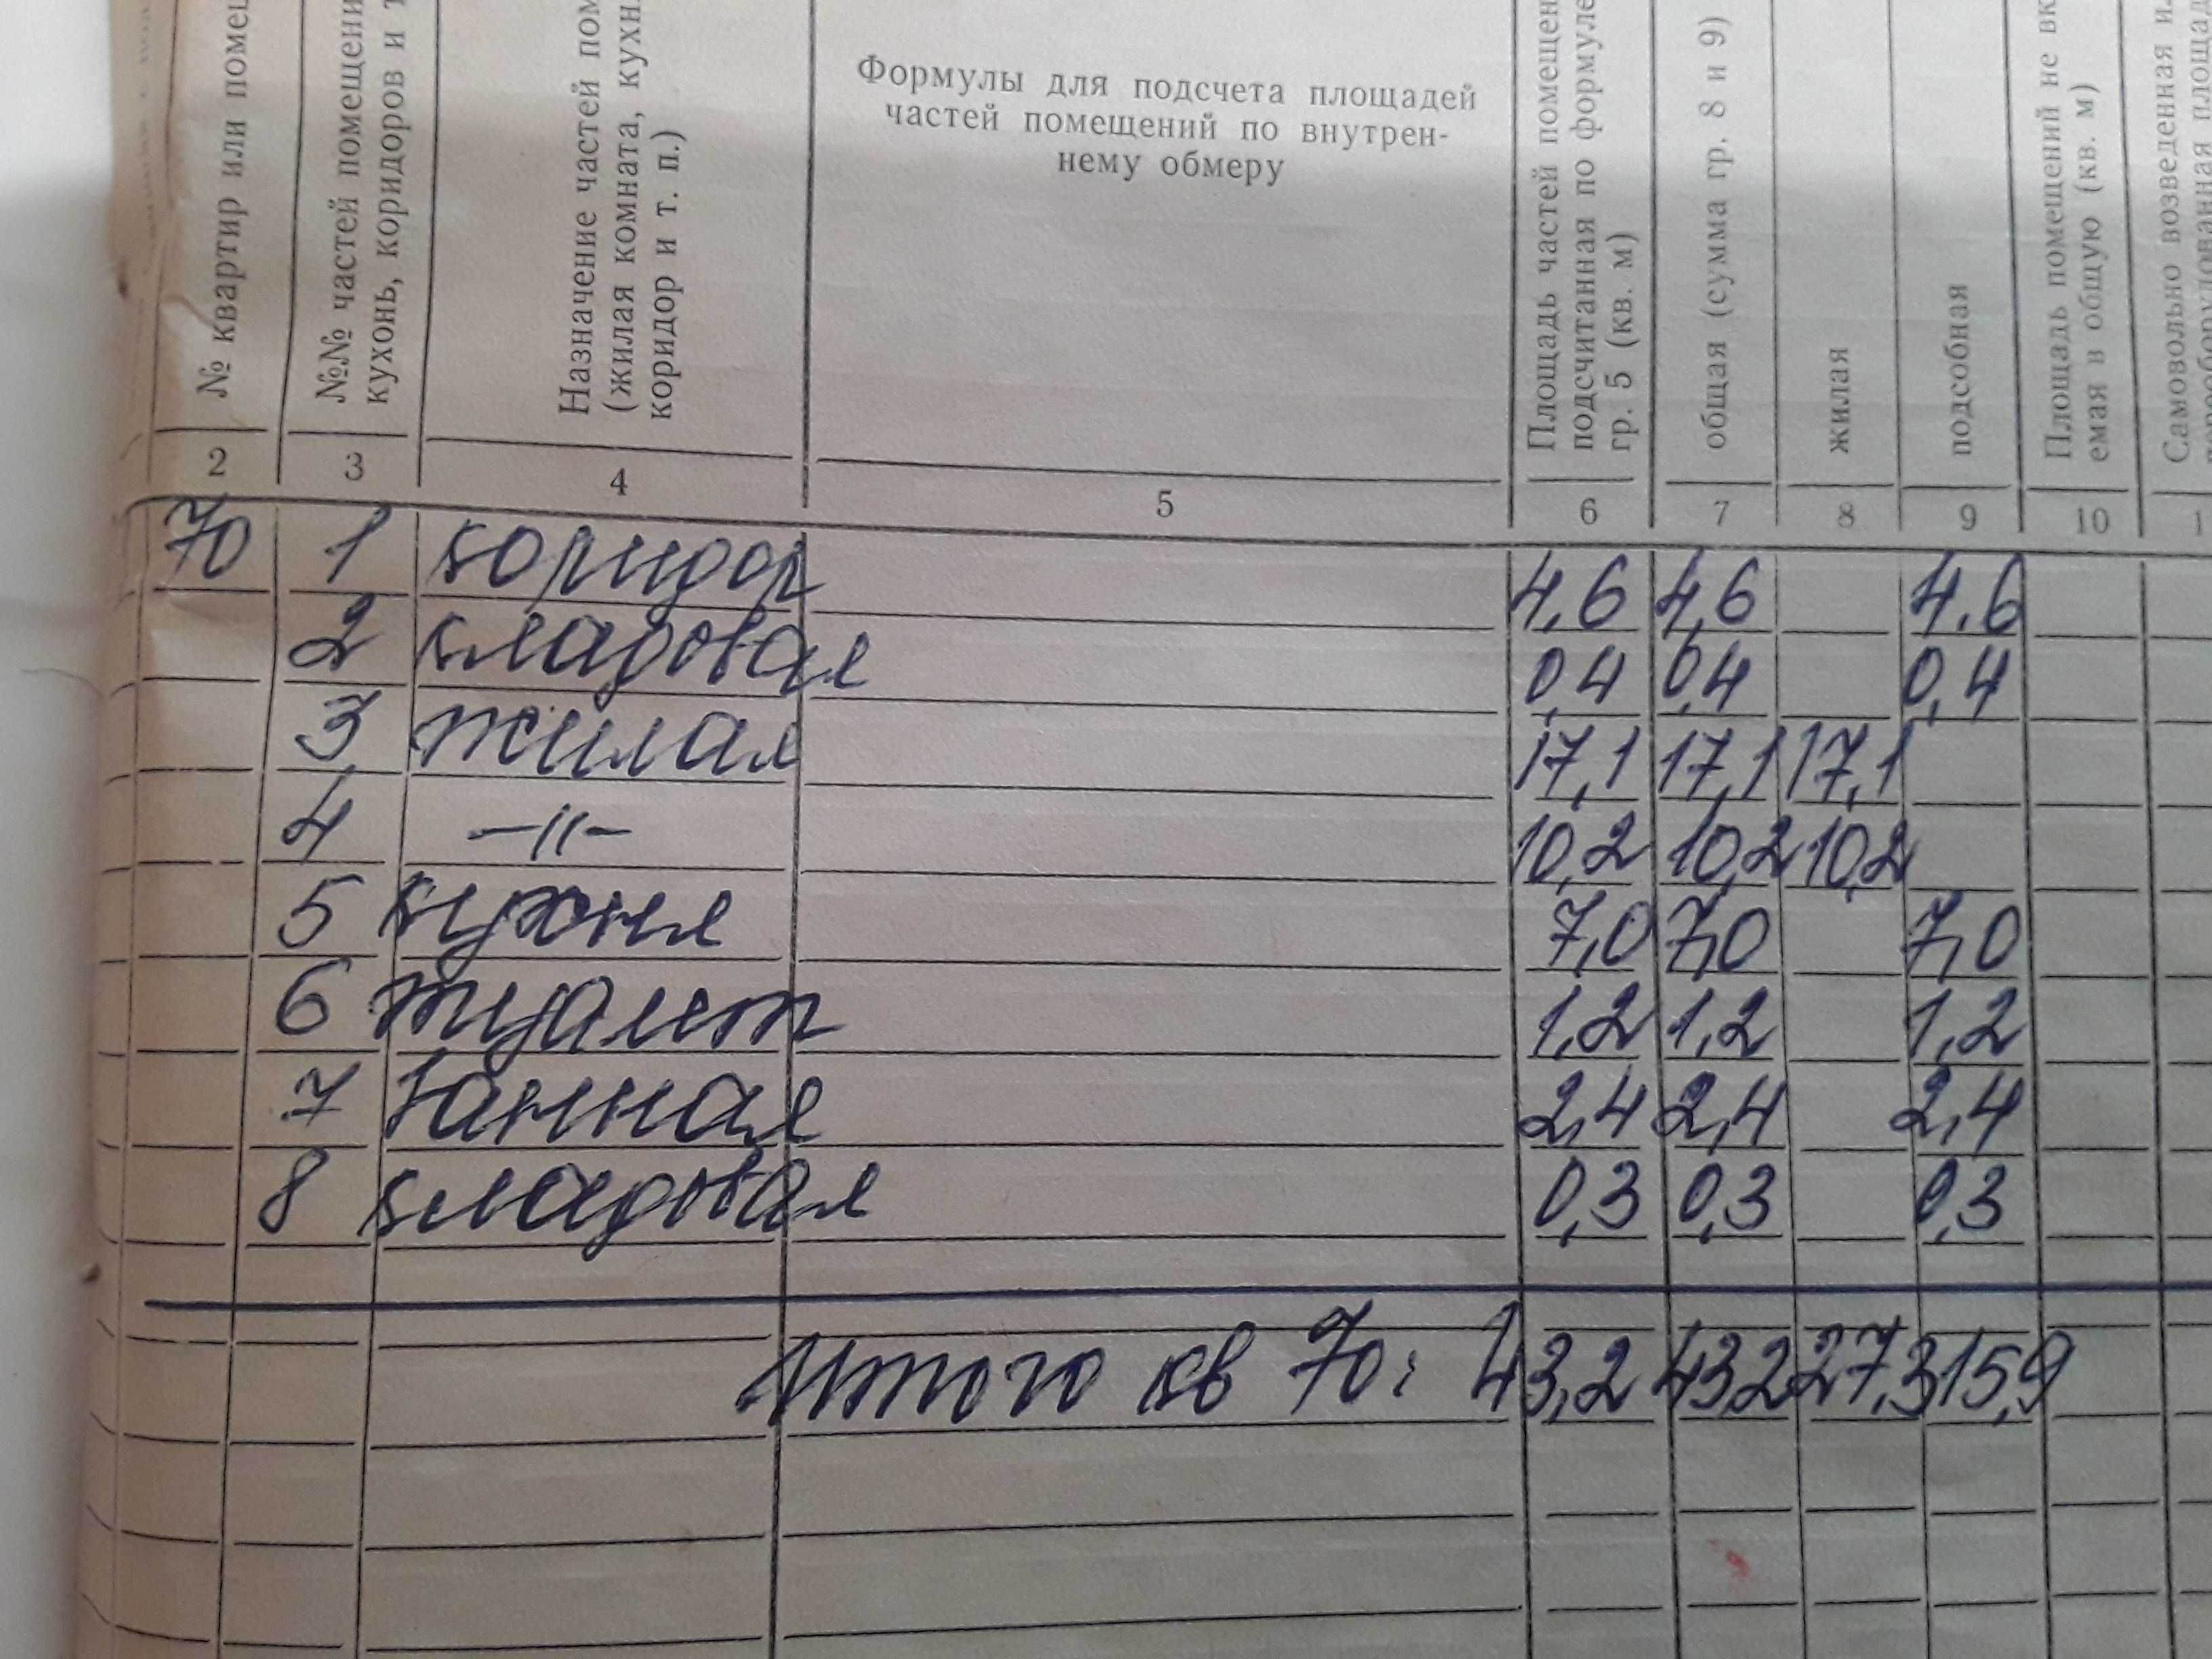 № квартир или
№№ частей
кухонь, коридоров и
Назначение частей
(жилая комната,
коридор и т. п.)
Формулы для подсчета площадей
частей помещений по внутрен-
нему обмеру
Площадь частей
подсчитанная по формуле
гр. 5 (кв. м)
общая (сумма гр. 8 и 9)
жилая
подсобная
Площадь помещений не
емая в общую (кв. м)
Самовольно возведенная
2 3 4 5 6 7 8 9 10
70 1 коридор 4,6 4,6 4,6
2 кладовая 0,4 0,4 0,4
3 жилая 17,1 17,1 17,1
4 —"— 10,2 10,2 10,2
5 кухня 7,0 7,0 7,0
6 туалет 1,2 1,2 1,2
7 ванная 2,4 2,4 2,4
8 кладовая 0,3 0,3 0,3
Итого кв 70: 43,2 43,2 27,3 15,9